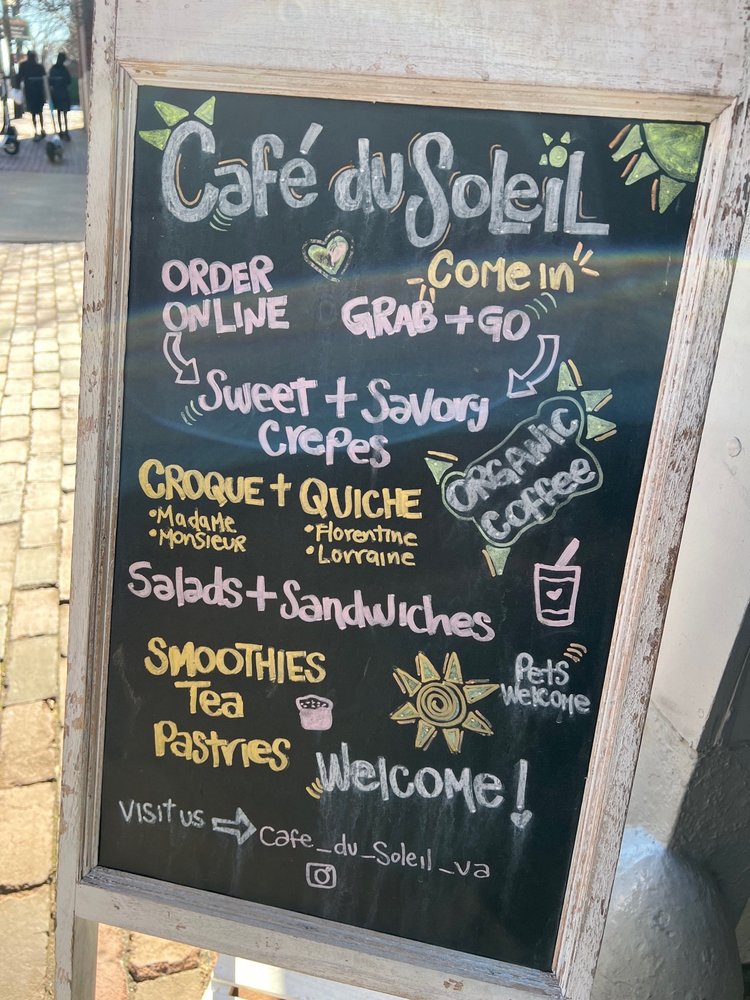 Café du Soleil
ORDER
ONLINE
Come in
GRAB + GO
Sweet + Savory
Crepes
ORGANIC
Coffee
CROQUE + QUICHE
•Madame
•Monsieur
•Florentine
•Lorraine
Salads + Sandwiches
SMOOTHIES
Tea
Pastries
Pets
Welcome
Welcome!
VISIT US → Cafe_du_Soleil_va